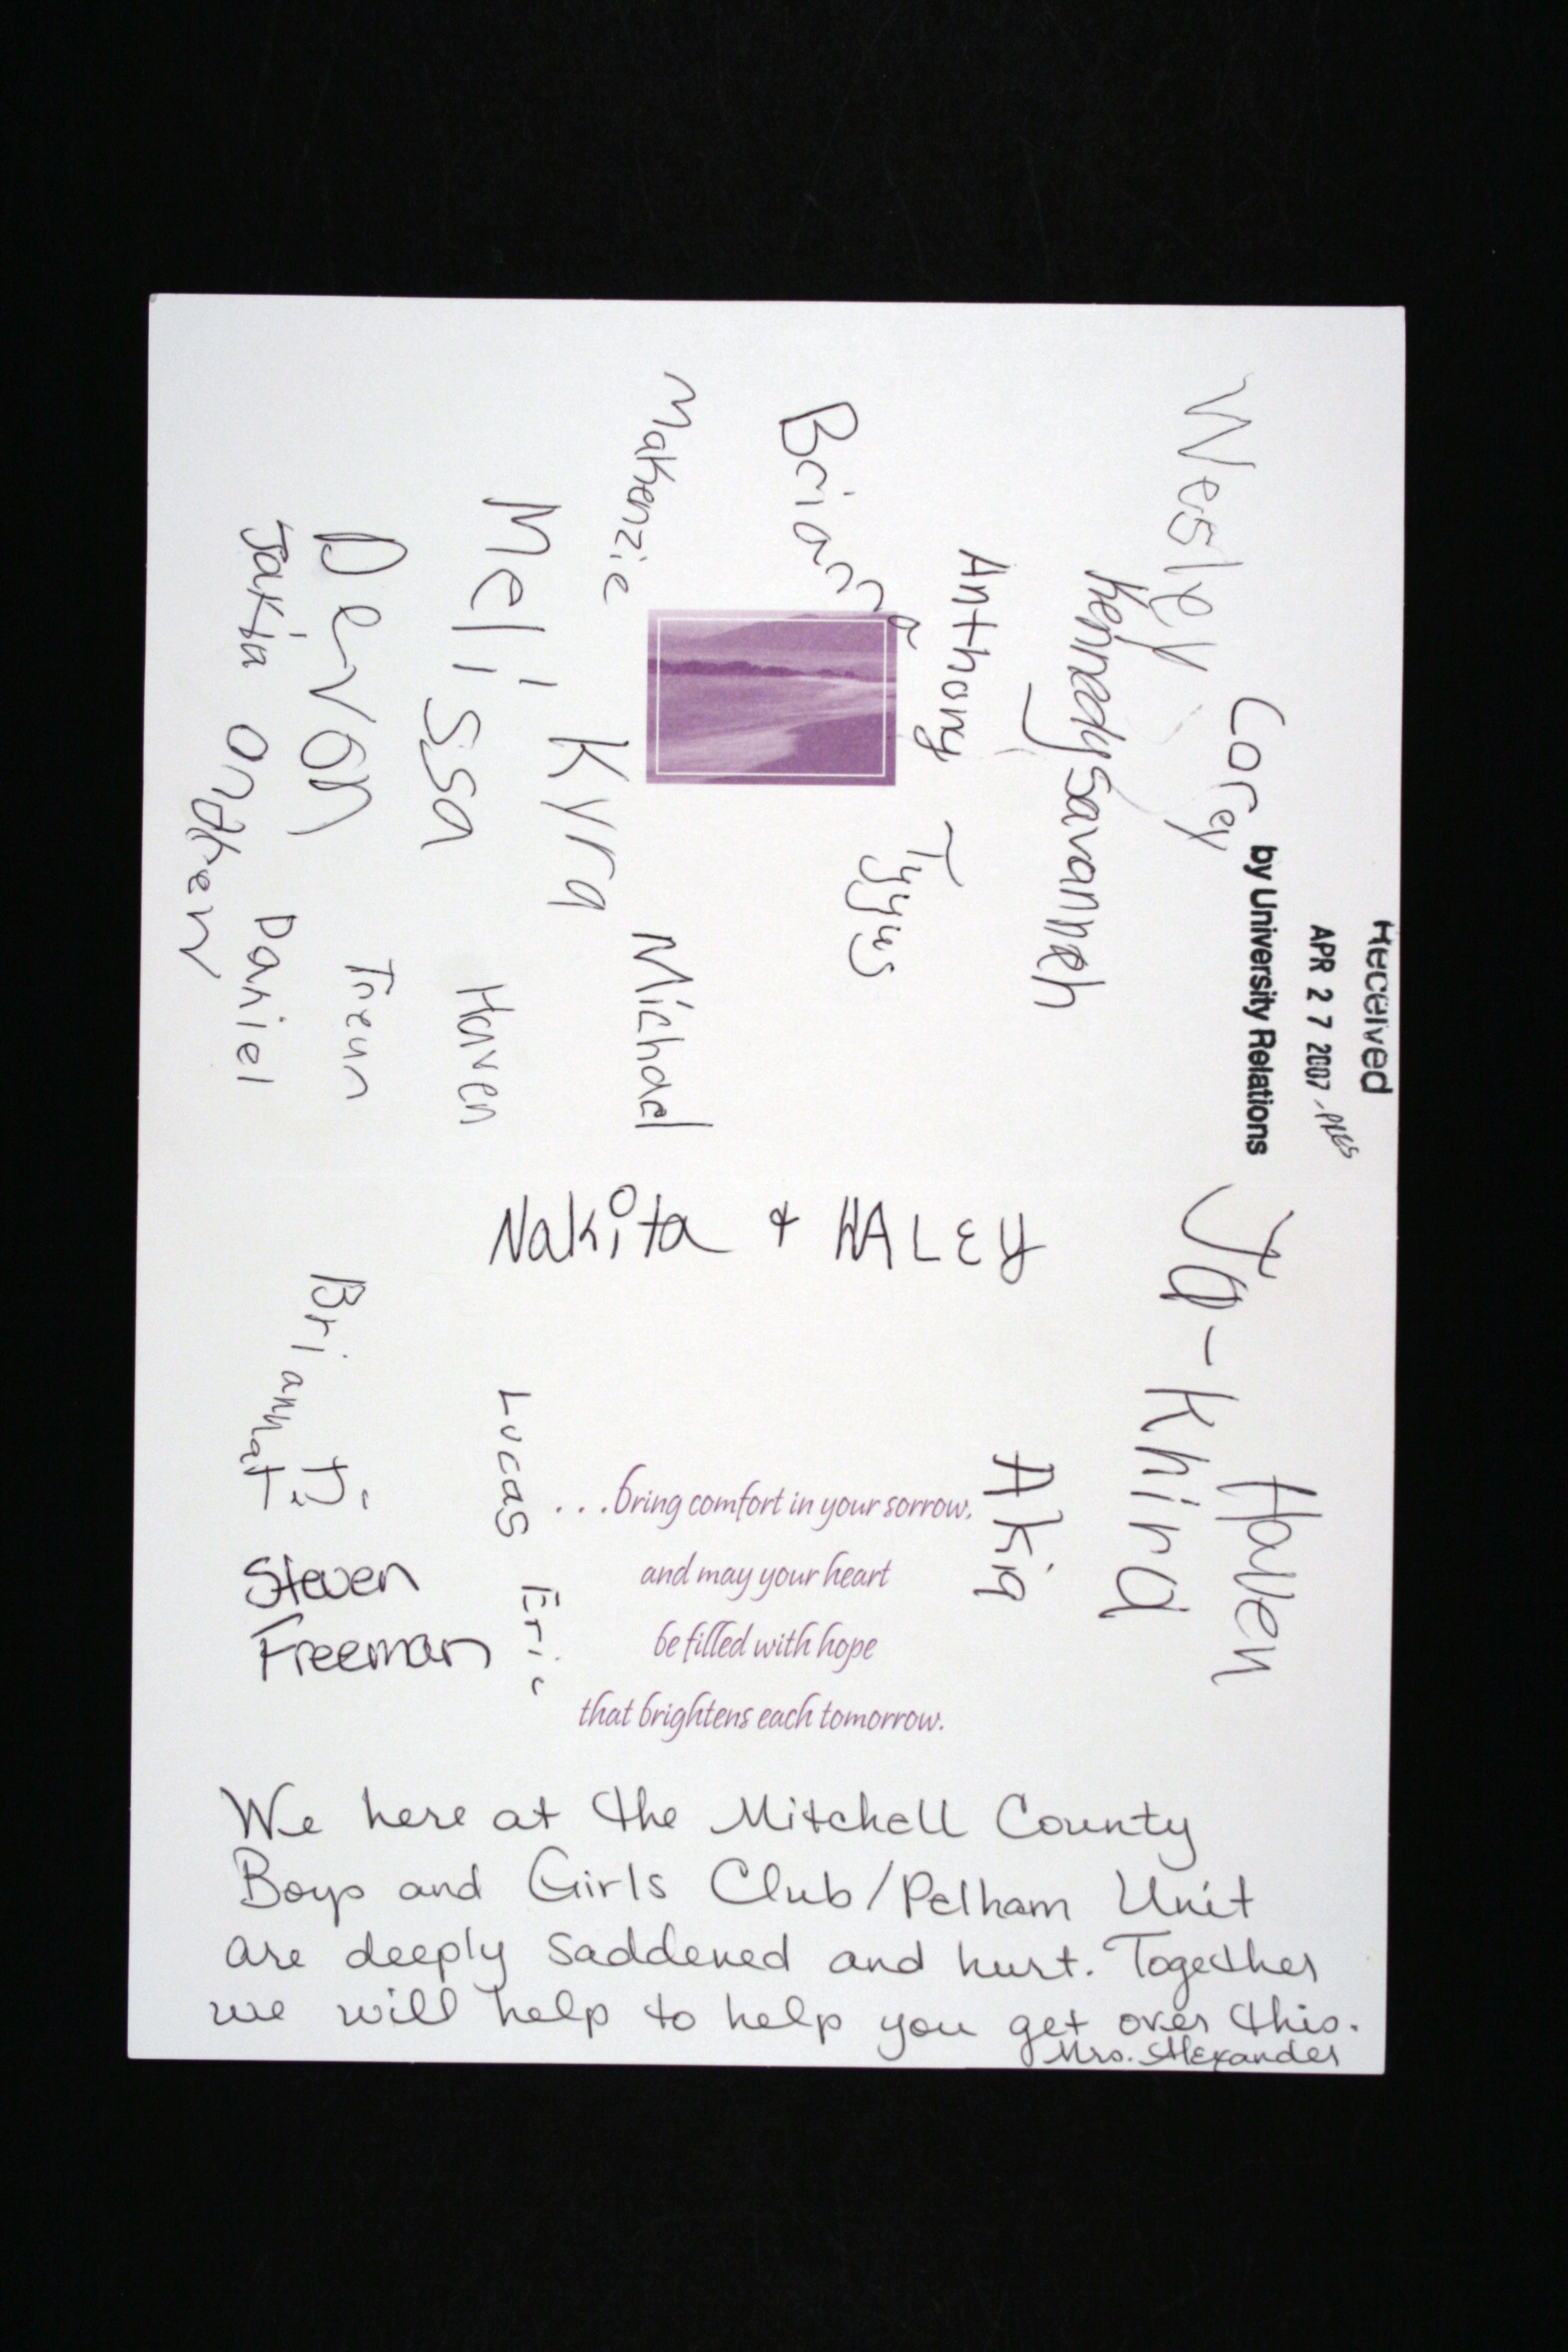 Wesley
Corey
Kennedy
Savannah
Anthony
Tyjus
Brianna
Makenzie
Melissa
Kyra
Michael
Devon
Jakia
Andrew
Daniel
Treun
Haven
Received
APR 27 2007
by University Relations
Nakita + HALEY
Ja-Khira
Haven
Akia
Lucas
Eric
Brianna T.
T.J.
Steven
Freeman
...bring comfort in your sorrow,
and may your heart
be filled with hope
that brightens each tomorrow.
We here at the Mitchell County
Boys and Girls Club/Pelham Unit
are deeply saddened and hurt. Together
we will help to help you get over this.
Mrs. Alexander